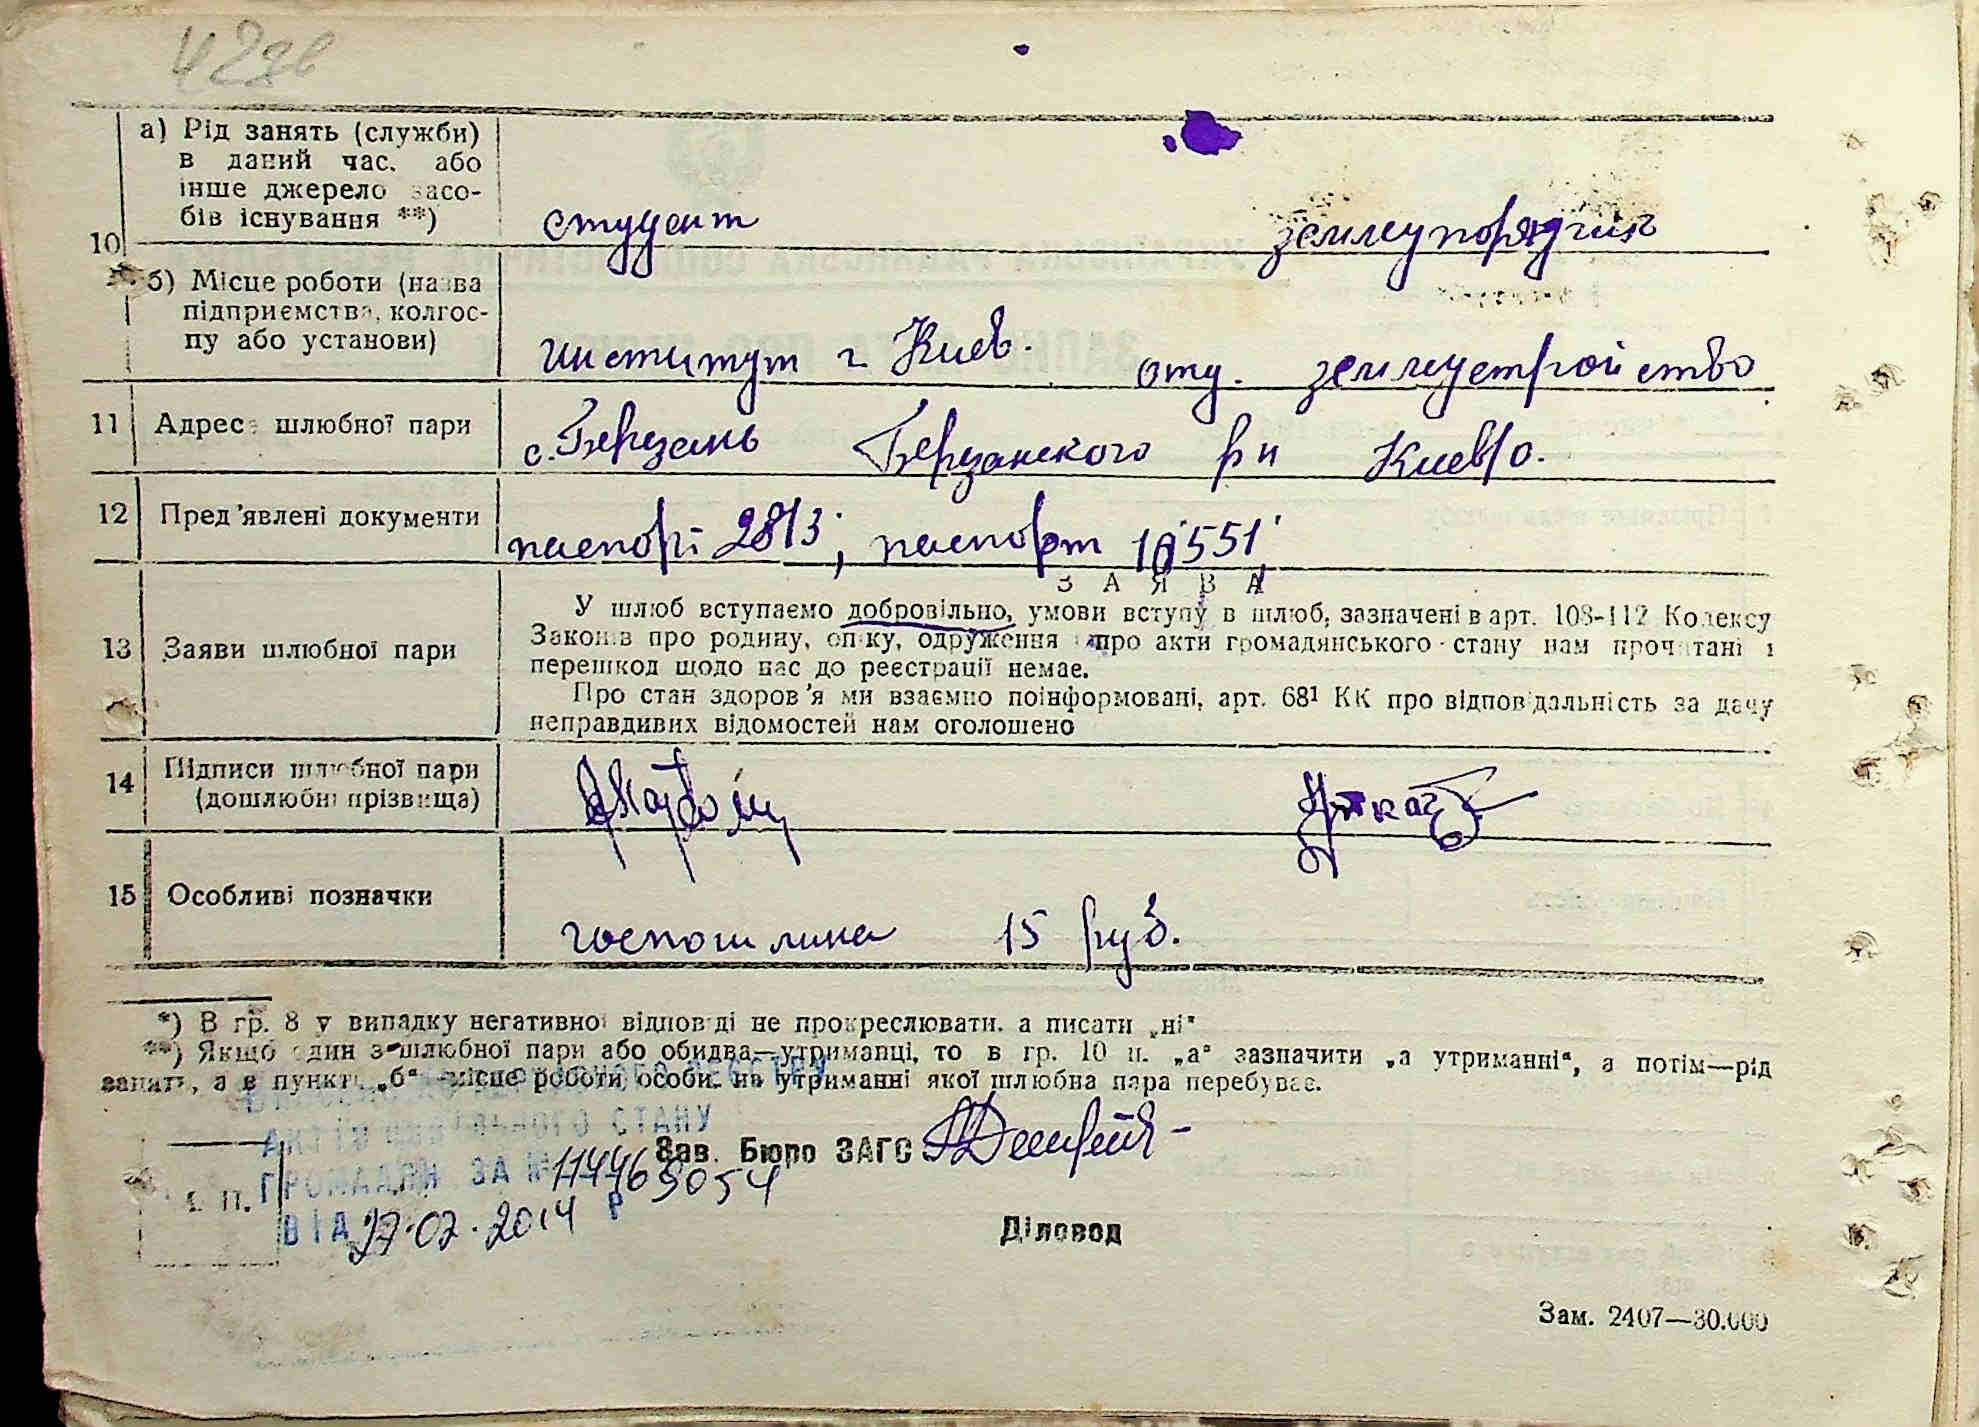 а) Рід занять (служби)
в даний час. або
інше джерело засо-
бів існування **)
студент
землеупорядчик
10
б) Місце роботи (назва
підприємства, колгос-
пу або установи)
институт г. Киев.
отд. землеустройство
11 Адреса шлюбної пари
с. Березань Березанского р н Киев/о.
12 Пред'явлені документи
паспорт 2813; паспорт 551
ЗАЯВА
13 Заяви шлюбної пари
У шлюб вступаємо добровільно, умови вступу в шлюб, зазначені в арт. 108-112 Кодексу
Законів про родину, опіку, одруження і про акти громадянського стану нам прочитані і
перешкод щодо нас до реєстрації немає.
Про стан здоров'я ми взаємно поінформовані, арт. 68¹ КК про відповідальність за дачу
неправдивих відомостей нам оголошено
14 Підписи шлюбної пари
(дошлюбні прізвища)
15 Особливі позначки
госпошлина 15 руб.
*) В гр. 8 у випадку негативної відповіді не прокреслювати. а писати „ні“
**) Якщо один з шлюбної пари або обидва—утриманці, то в гр. 10 п. „а“ зазначити „а утриманні“, а потім—рід
занять, а в пункті „б“ -місце роботи особи. на утриманні якої шлюбна пара перебуває.
АКТІВ ЦИВІЛЬНОГО СТАНУ
Зав. Бюро ЗАГС
ГРОМАДЯН ЗА №
М. П.
ВІД 27.02.2014 Р
Діловод
Зам. 2407—30.000